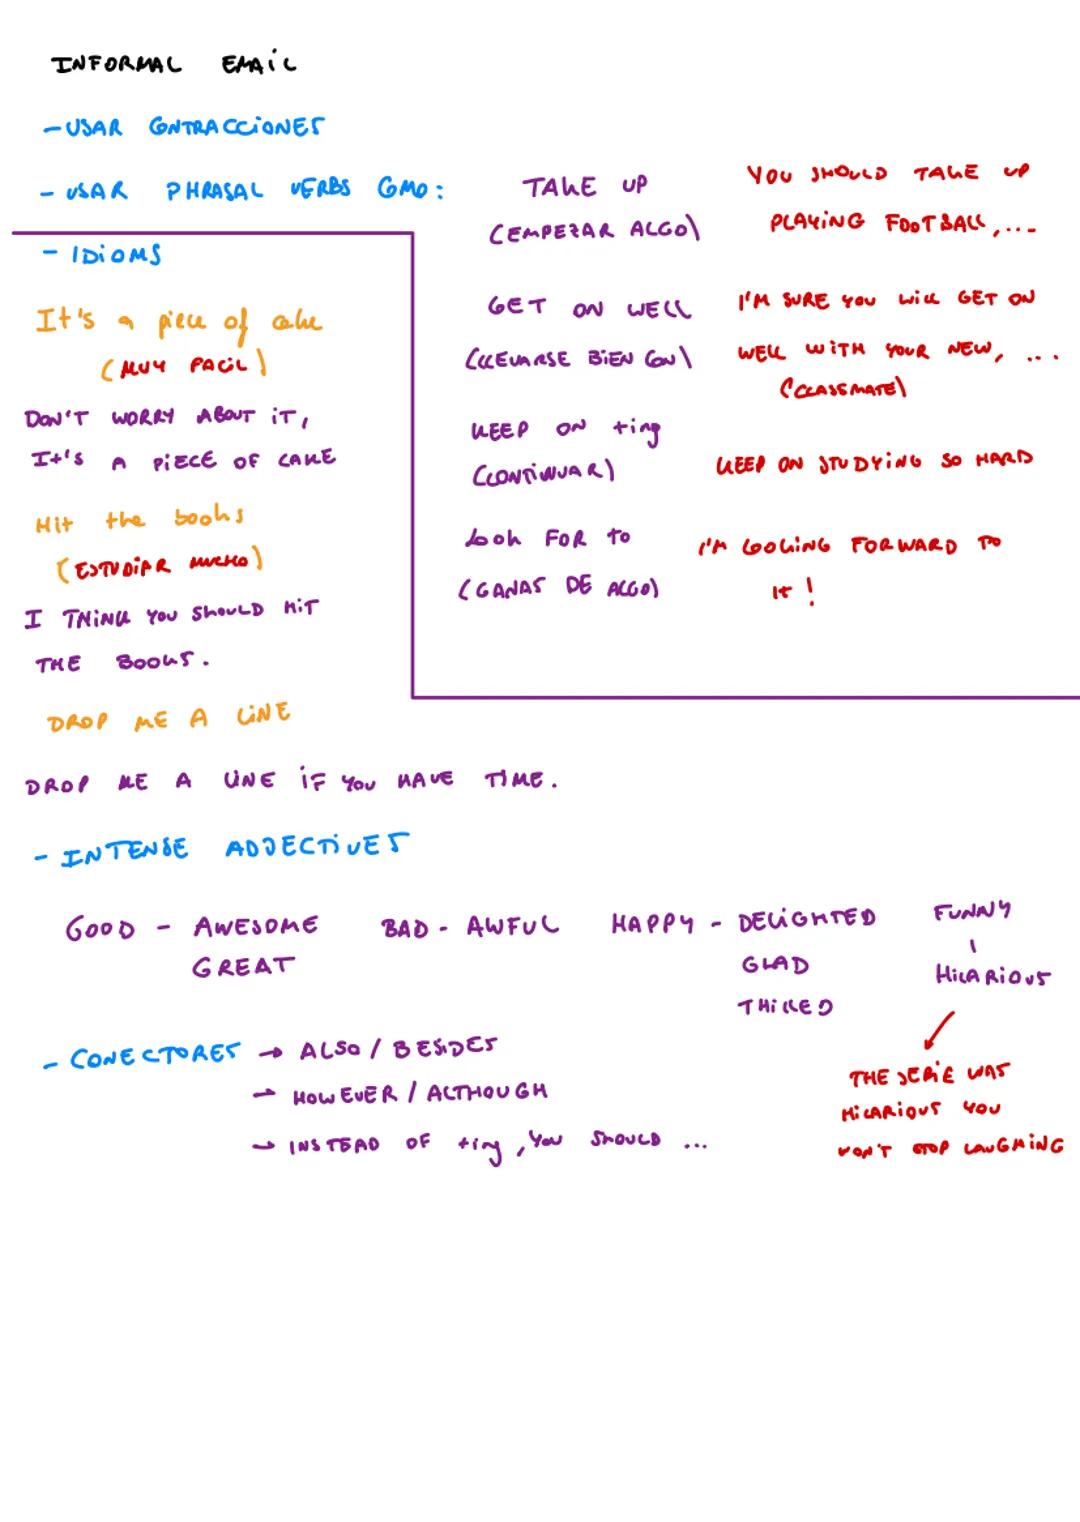 INFORMAL EMAIL
- USAR CONTRACCIONES
- USAR PHRASAL VERBS COMO:
TAKE UP
(EMPEZAR ALGO)
YOU SHOULD TAKE UP
PLAYING FOOTBALL, ...
GET ON WELL
(LLEVARSE BIEN CON)
I'M SURE YOU WILL GET ON
WELL WITH YOUR NEW, ...
(CLASSMATE)
KEEP ON +ing
(CONTINUAR)
KEEP ON STUDYING SO HARD
Look FOR to
(GANAS DE ALGO)
I'M LOOKING FORWARD TO
It !
- IDIOMS
It's a piece of cake
(MUY FACIL)
DON'T WORRY ABOUT IT,
It's A PIECE OF CAKE
Hit the books
(ESTUDIAR MUCHO)
I THINK YOU SHOULD HIT
THE BOOKS.
DROP ME A LINE
DROP ME A LINE IF YOU HAVE TIME.
- INTENSE ADJECTIVES
GOOD - AWESOME
GREAT
BAD - AWFUL
HAPPY - DELIGHTED
GLAD
THILLED
FUNNY
HILARIOUS
THE SERIE WAS
HILARIOUS YOU
WON'T STOP LAUGHING
- CONECTORES → ALSO / BESIDES
→ HOWEVER / ALTHOUGH
→ INSTEAD OF +ing, YOU SHOULD ...